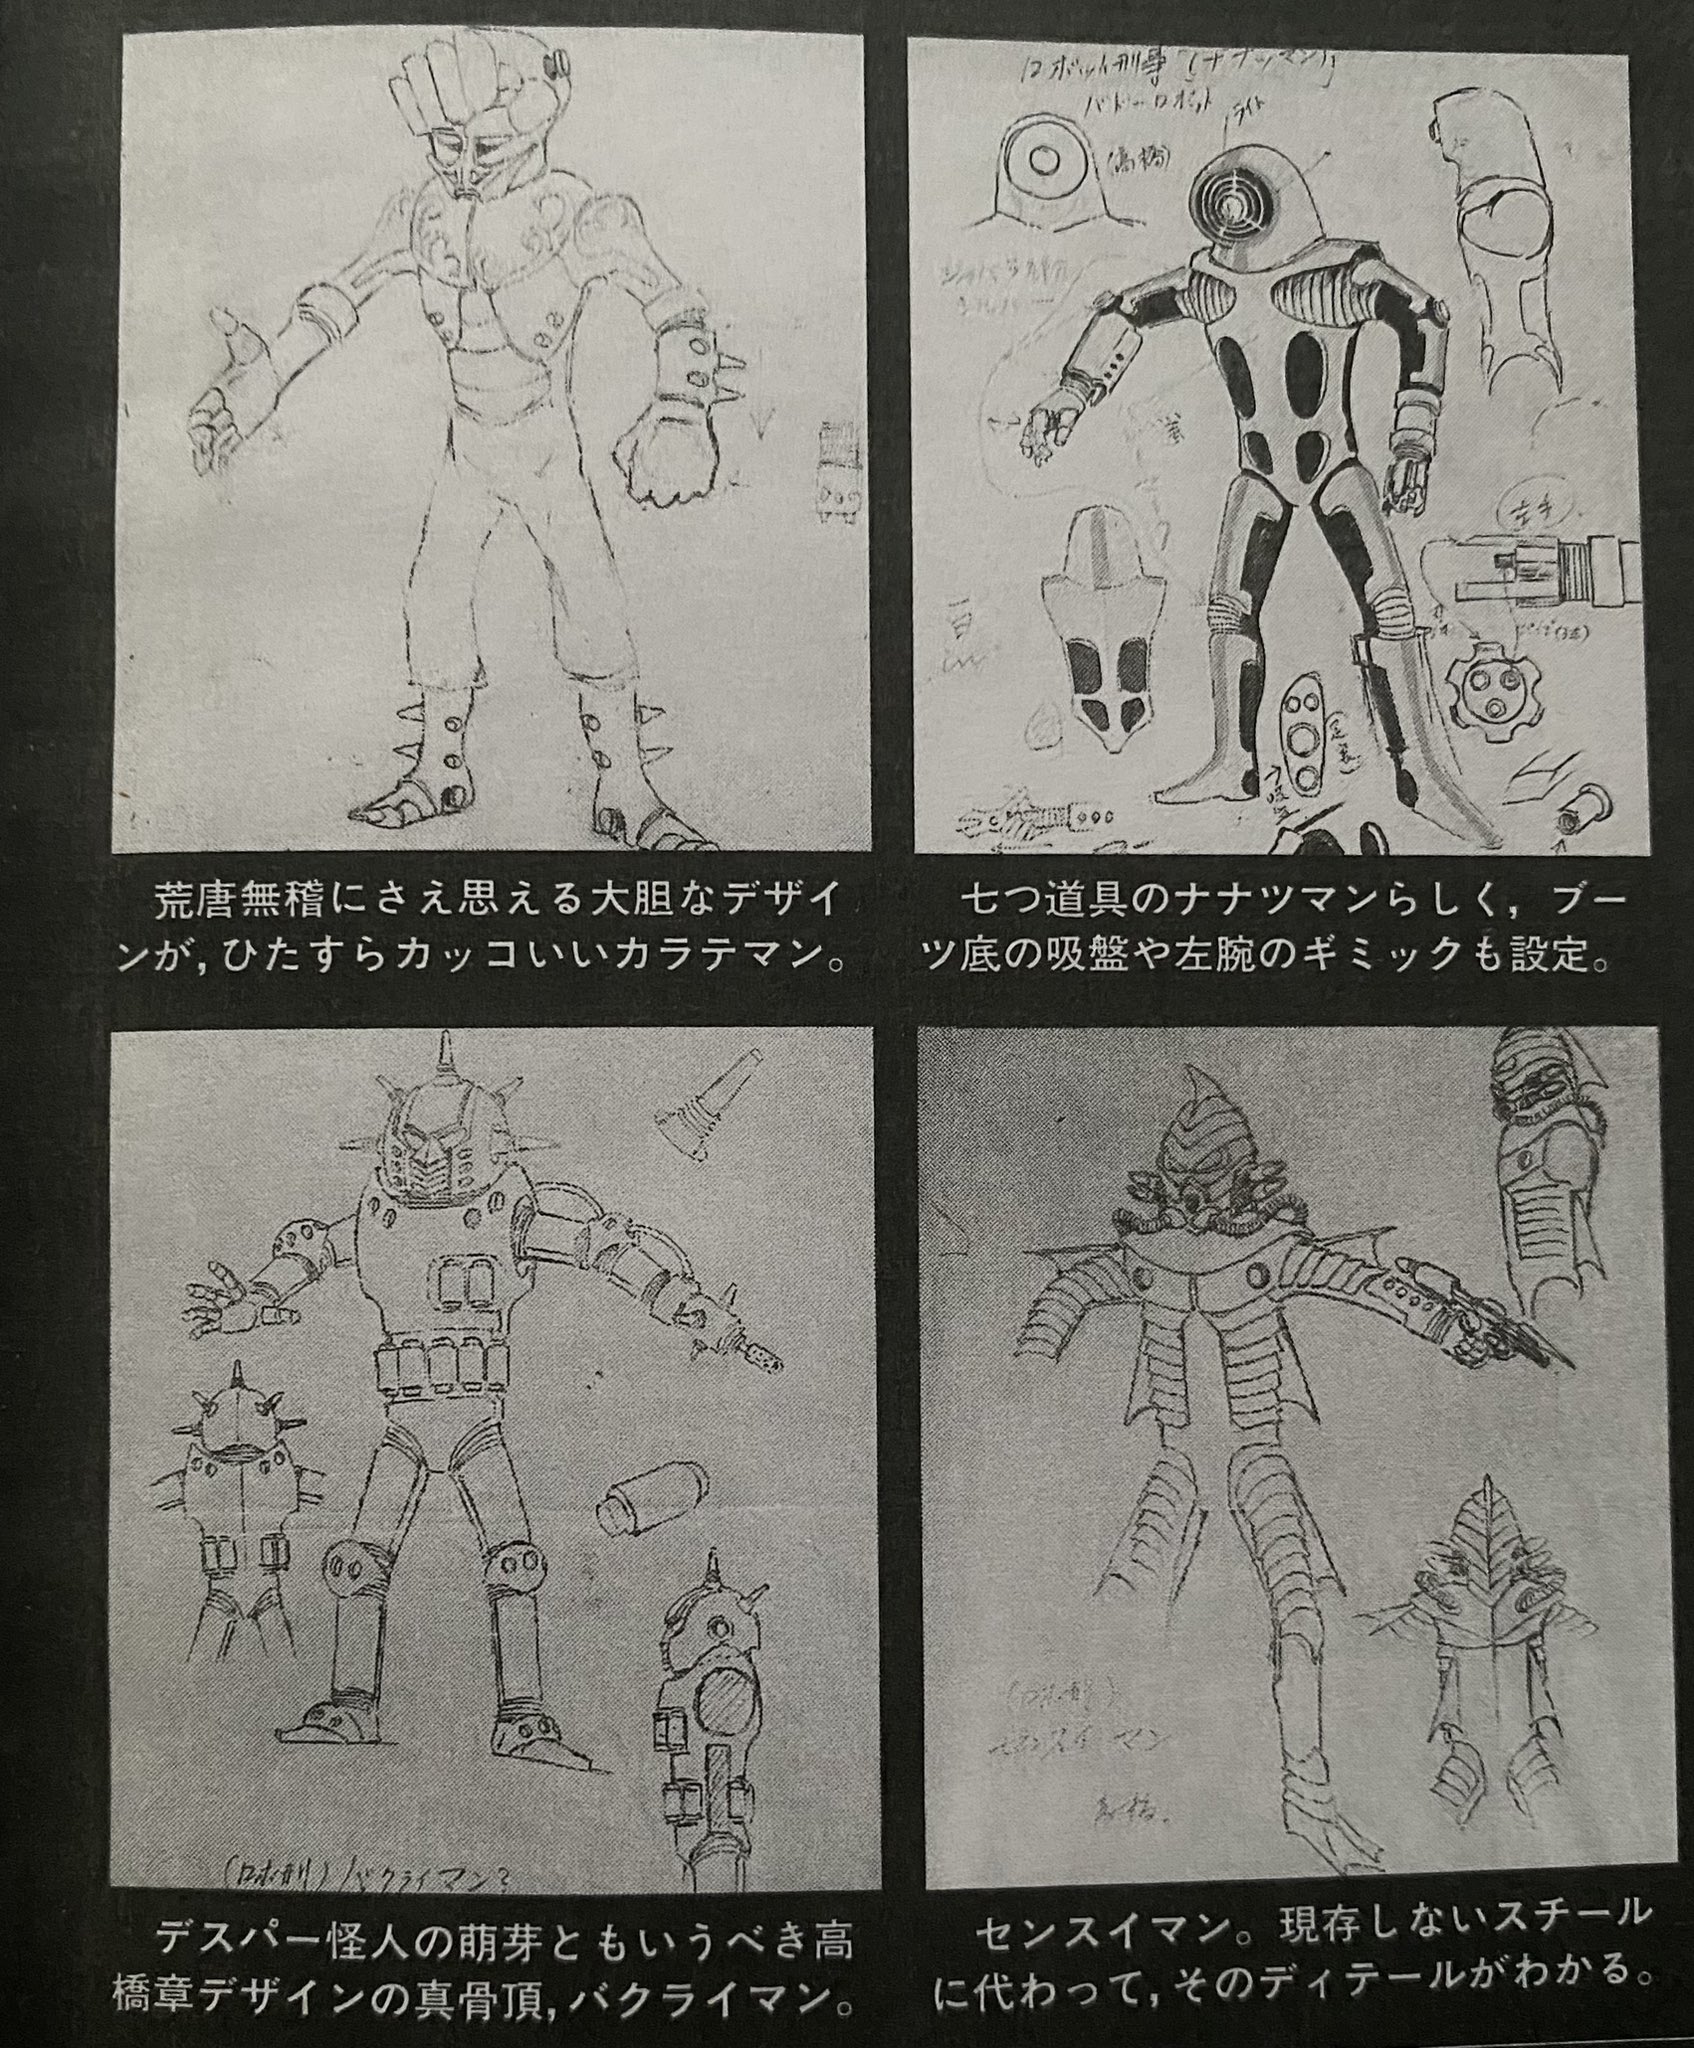 ロボット刑事「ナナツマン」
バドーロボット
ライト
(高橋)
左手
荒唐無稽にさえ思える大胆なデザイ
ンが,ひたすらカッコいいカラテマン。
七つ道具のナナツマンらしく,ブー
ツ底の吸盤や左腕のギミックも設定。
(ロボ刑)バクライマン?
センスイマン
高橋
デスパー怪人の萌芽ともいうべき高
橋章デザインの真骨頂,バクライマン。
センスイマン。現存しないスチール
に代わって,そのディテールがわかる。